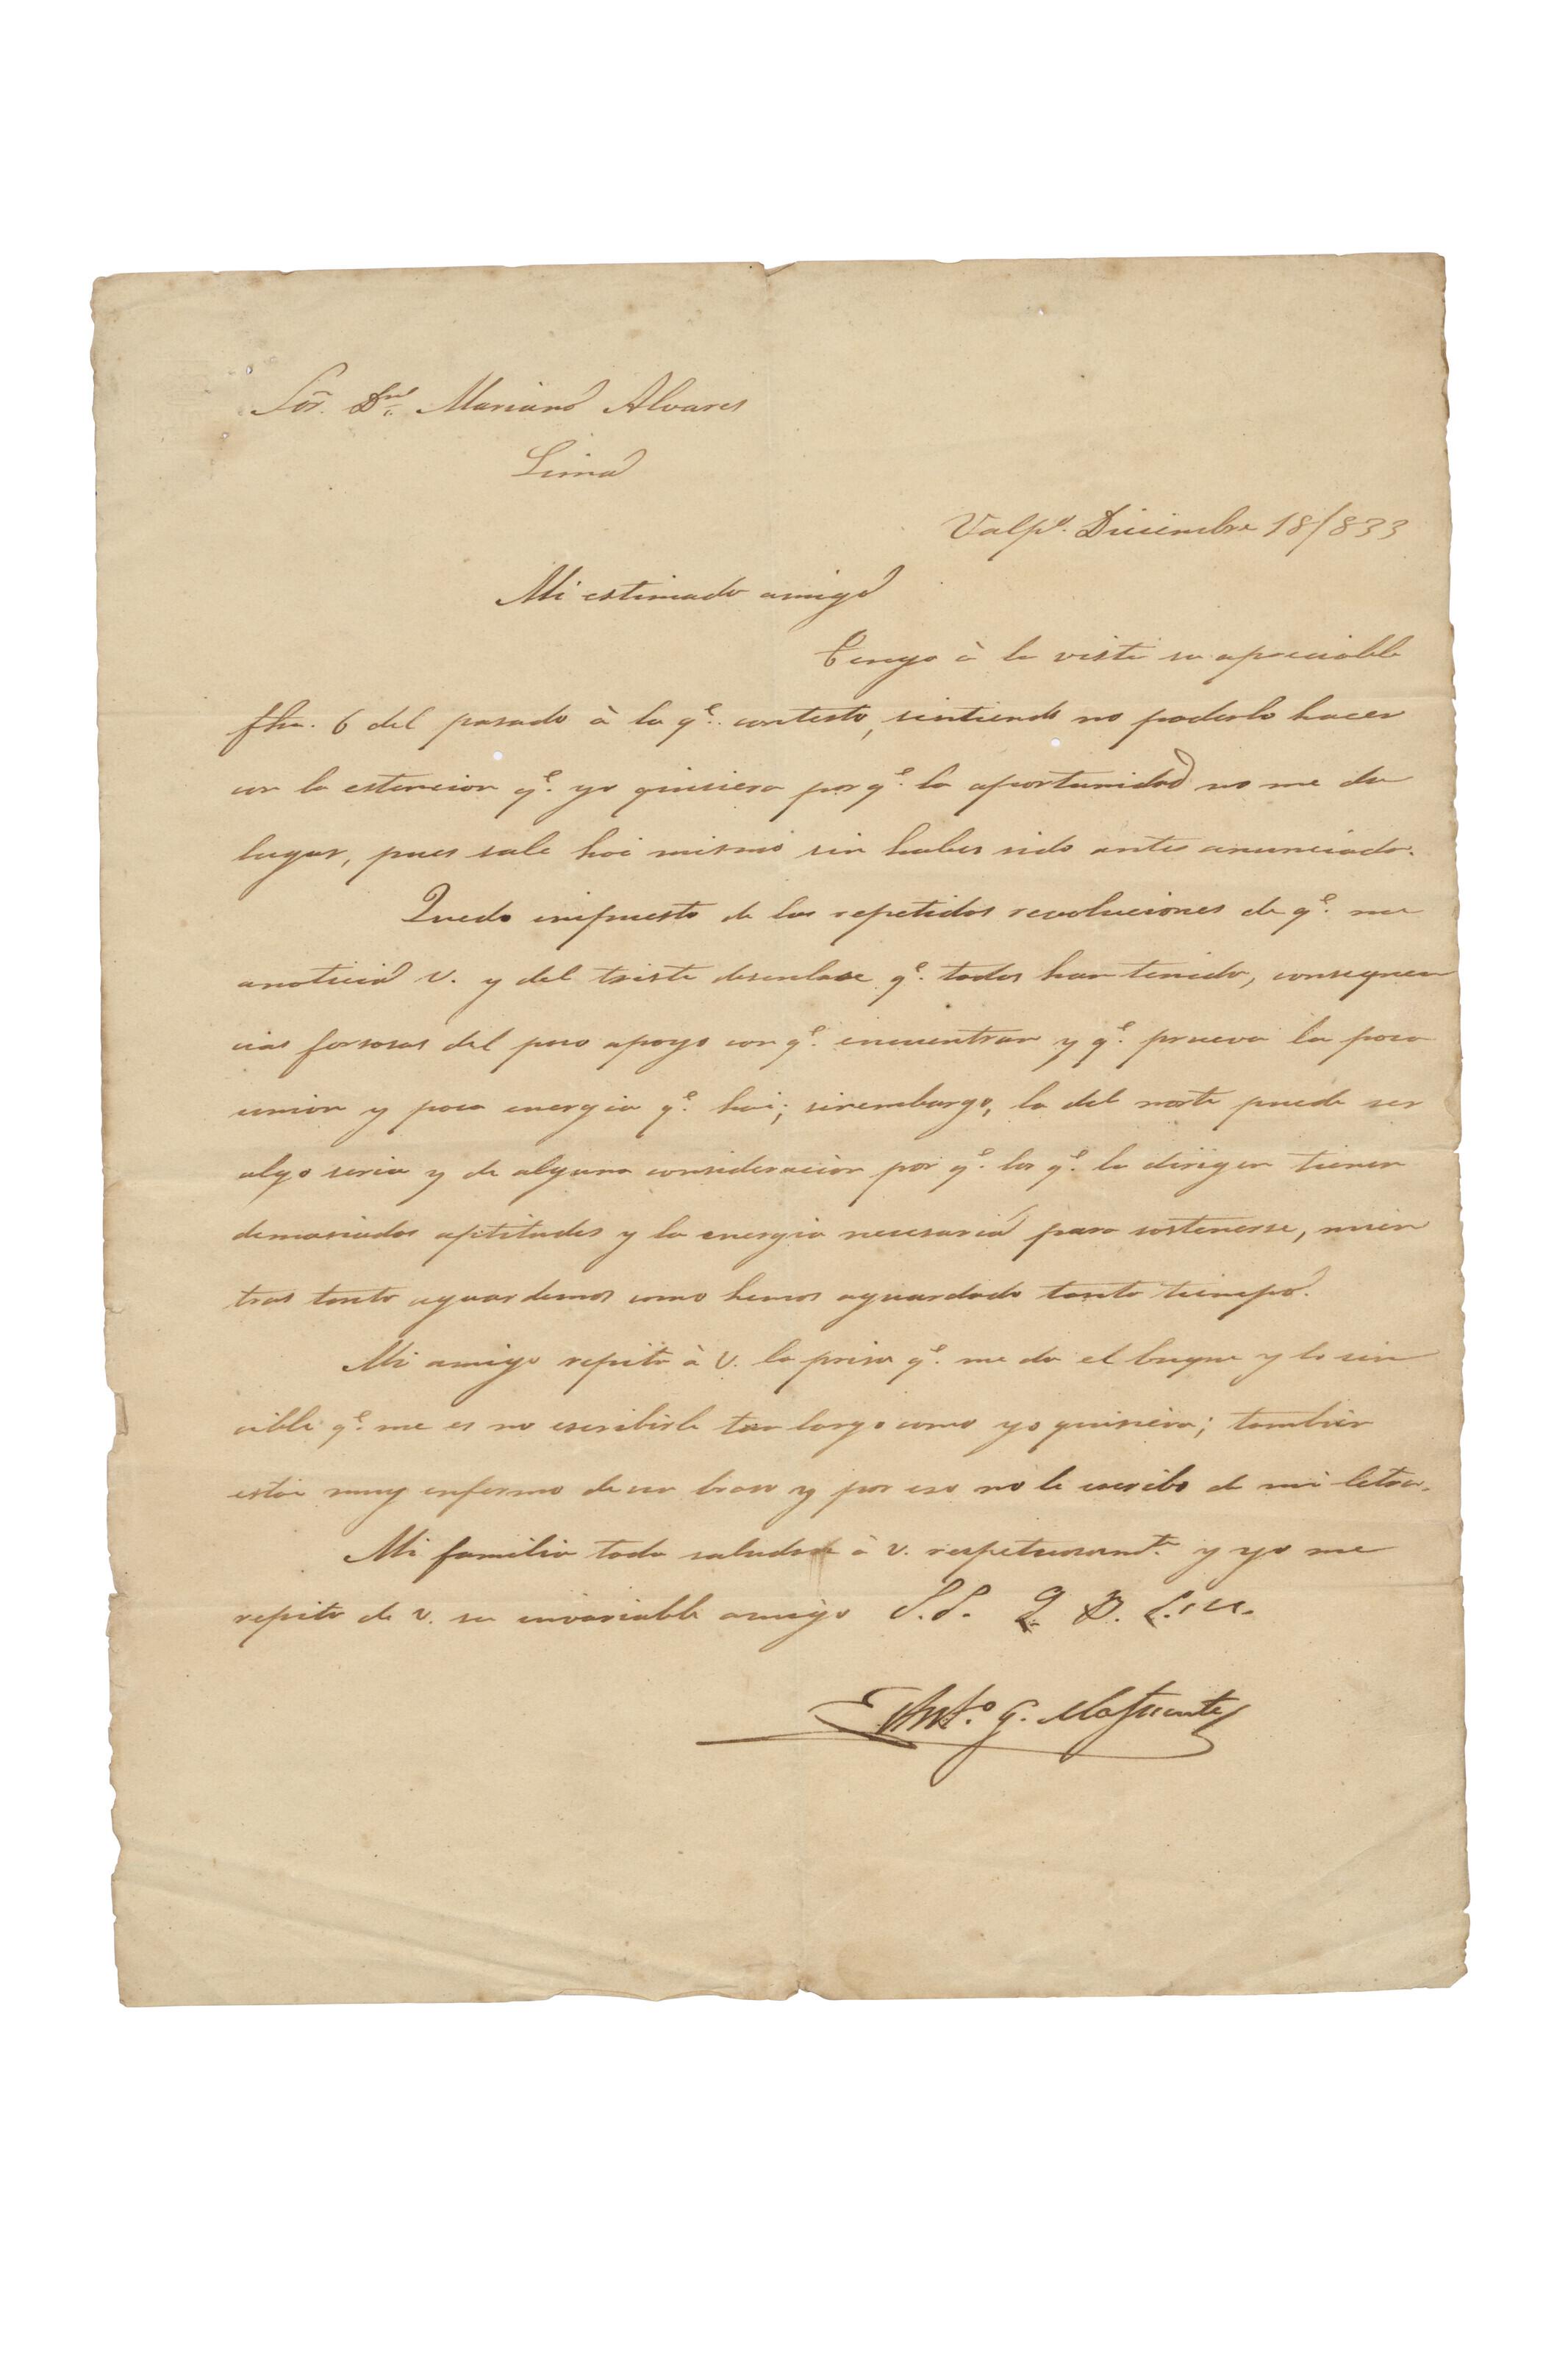 Sōr. Dn. Mariano Alvares
Lima
Valpo. Diciembre 18/833
Mi estimado amigo
Tengo à la vista su apreciable
fha. 6 del pasado à la qe. contesto, sintiendo no poderlo hacer
con la estencion qe. yo quisiera por qe. la oportunidad no me da
lugar, pues sale hoi mismo sin haber sido antes anunciado.
Quedo impuesto de las repetidas revoluciones de qe. me
anoticia V. y del triste desenlase qe. todas han tenido, consequen
cias forsosas del poco apoyo con qe. encuentran y qe. prueva la poca
union y poca energia qe. hai; sinembargo, la del norte puede ser
algo seria y de alguna consideracion por qe. los qe. la dirigen tienen
demasiadas aptitudes y la energia necesaria para sostenerse, mien
tras tanto aguardemos como hemos aguardado tanto tiempo.
Mi amigo repito à V. la prisa qe. me da el buque y lo sen
cible qe. me es no escribirle tan largo como yo quisiera; tambien
estoi muy enfermo de un braso y por eso no le escribo de mi letra.
Mi familia toda saluda à V. respetuosamte. y yo me
repito de V. su invariable amigo S.S. Q. B. S. M.
Anto. G. Lafuente